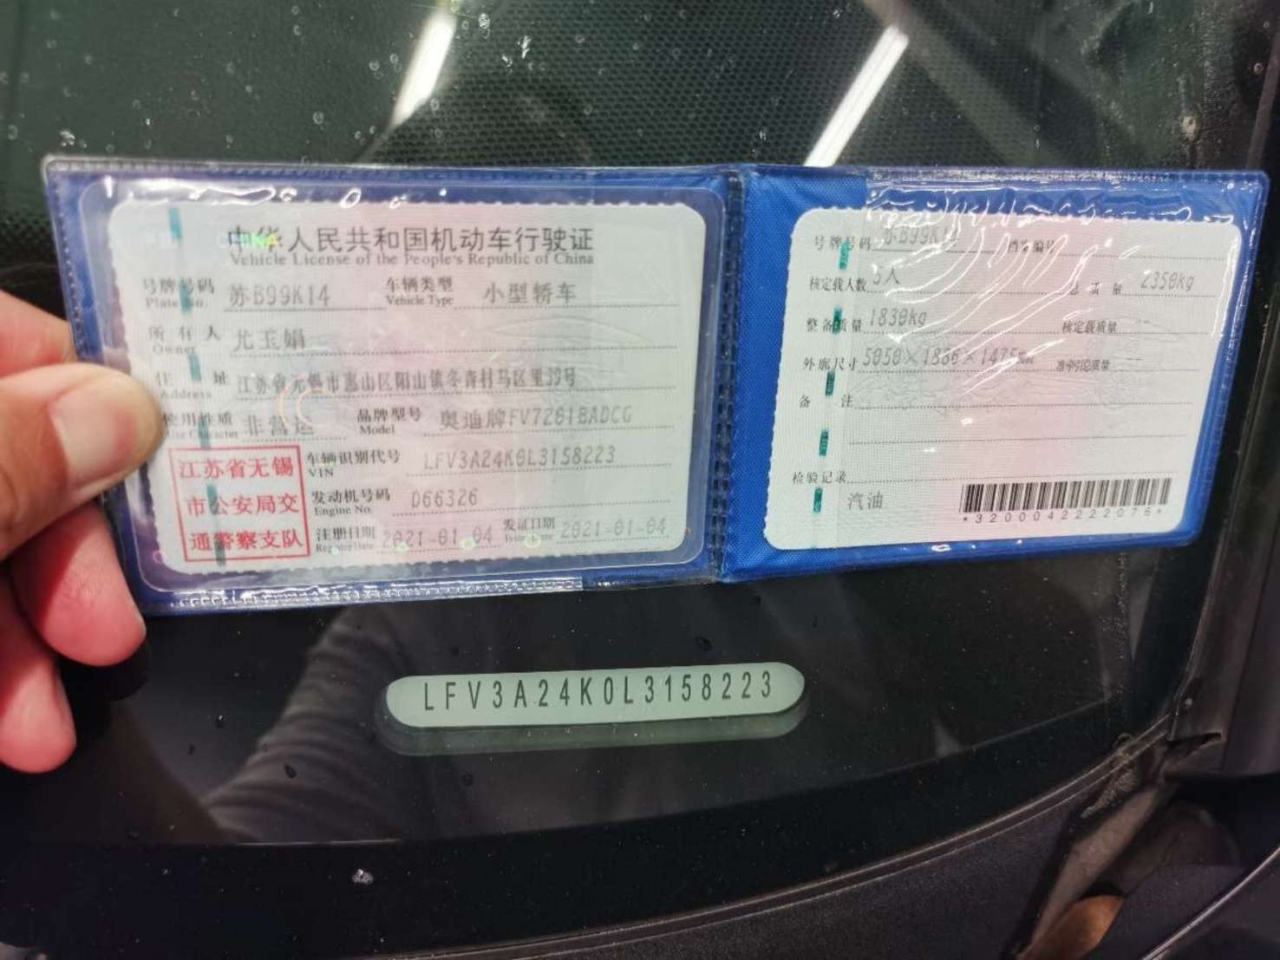 中华人民共和国机动车行驶证
Vehicle License of the People's Republic of China
号牌号码 苏B99K14 车辆类型 小型轿车
Plate No. Vehicle Type
所有人 尤玉娟
Owner
住址 江苏省无锡市惠山区阳山镇冬青村马区里39号
Address
使用性质 非营运 品牌型号 奥迪牌FV7201BADCG
Use Character Model
江苏省无锡
市公安局交
通警察支队
车辆识别代号 LFV3A24K0L3158223
VIN
发动机号码 D66326
Engine No.
注册日期 2021-01-04 发证日期 2021-01-04
Register Date Issue Date
号牌号码 苏B99K 档案编号
核定载人数 5人 总质量 2350kg
整备质量 1830kg 核定载质量
外廓尺寸 5050×1886×1475mm 准牵引总质量
备注
检验记录
汽油
*3200042222076*
LFV3A24K0L3158223